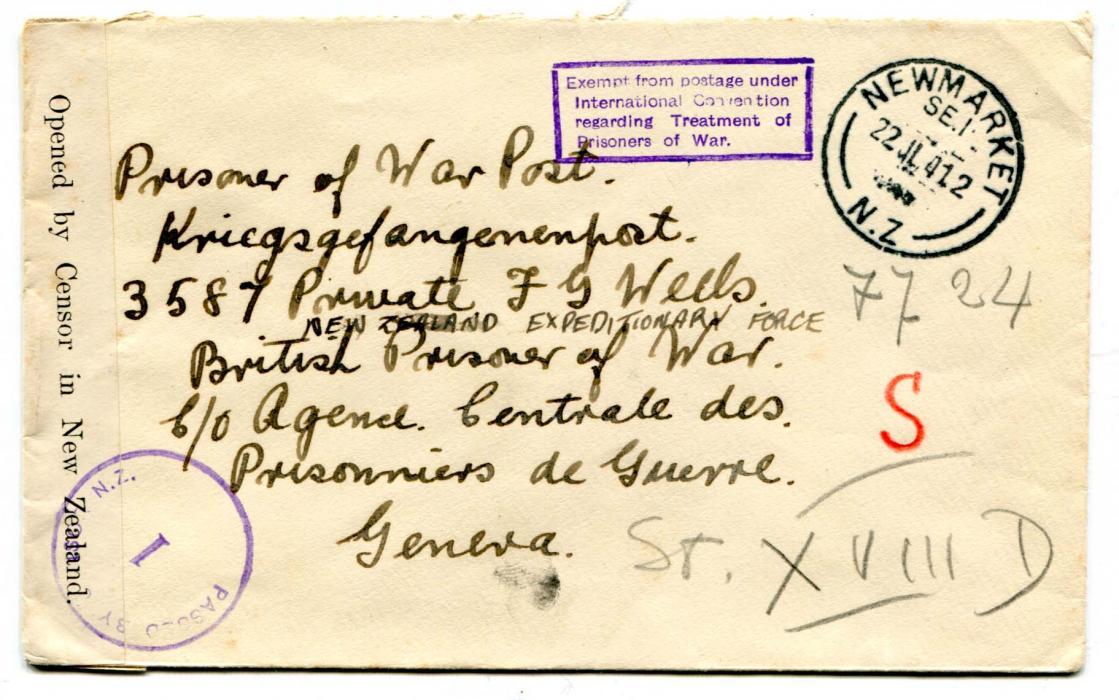 Opened by Censor in New Zealand.
Exempt from postage under
International Convention
regarding Treatment of
Prisoners of War.
NEWMARKET
SE.1
22 JL 41 2
N.Z
Prisoner of War Post.
Kriegsgefangenenpost.
3587 Private F G Wells.
NEW ZEALAND EXPEDITIONARY FORCE
British Prisoner of War.
C/o Agence. Centrale des.
Prisonniers de Guerre.
Geneva.
77 24
S
St. XVIII D
N.Z.
1
PASSED BY